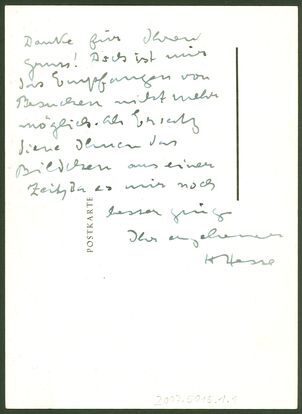 Danke für Ihren
Gruss! Doch ist mir
das Empfangen von
Besuchen nicht mehr
möglich. Als Ersatz
diene Ihnen das
Bildchen aus einer
Zeit, da es mir noch
besser ging
Ihr ergebener
H Hesse
POSTKARTE